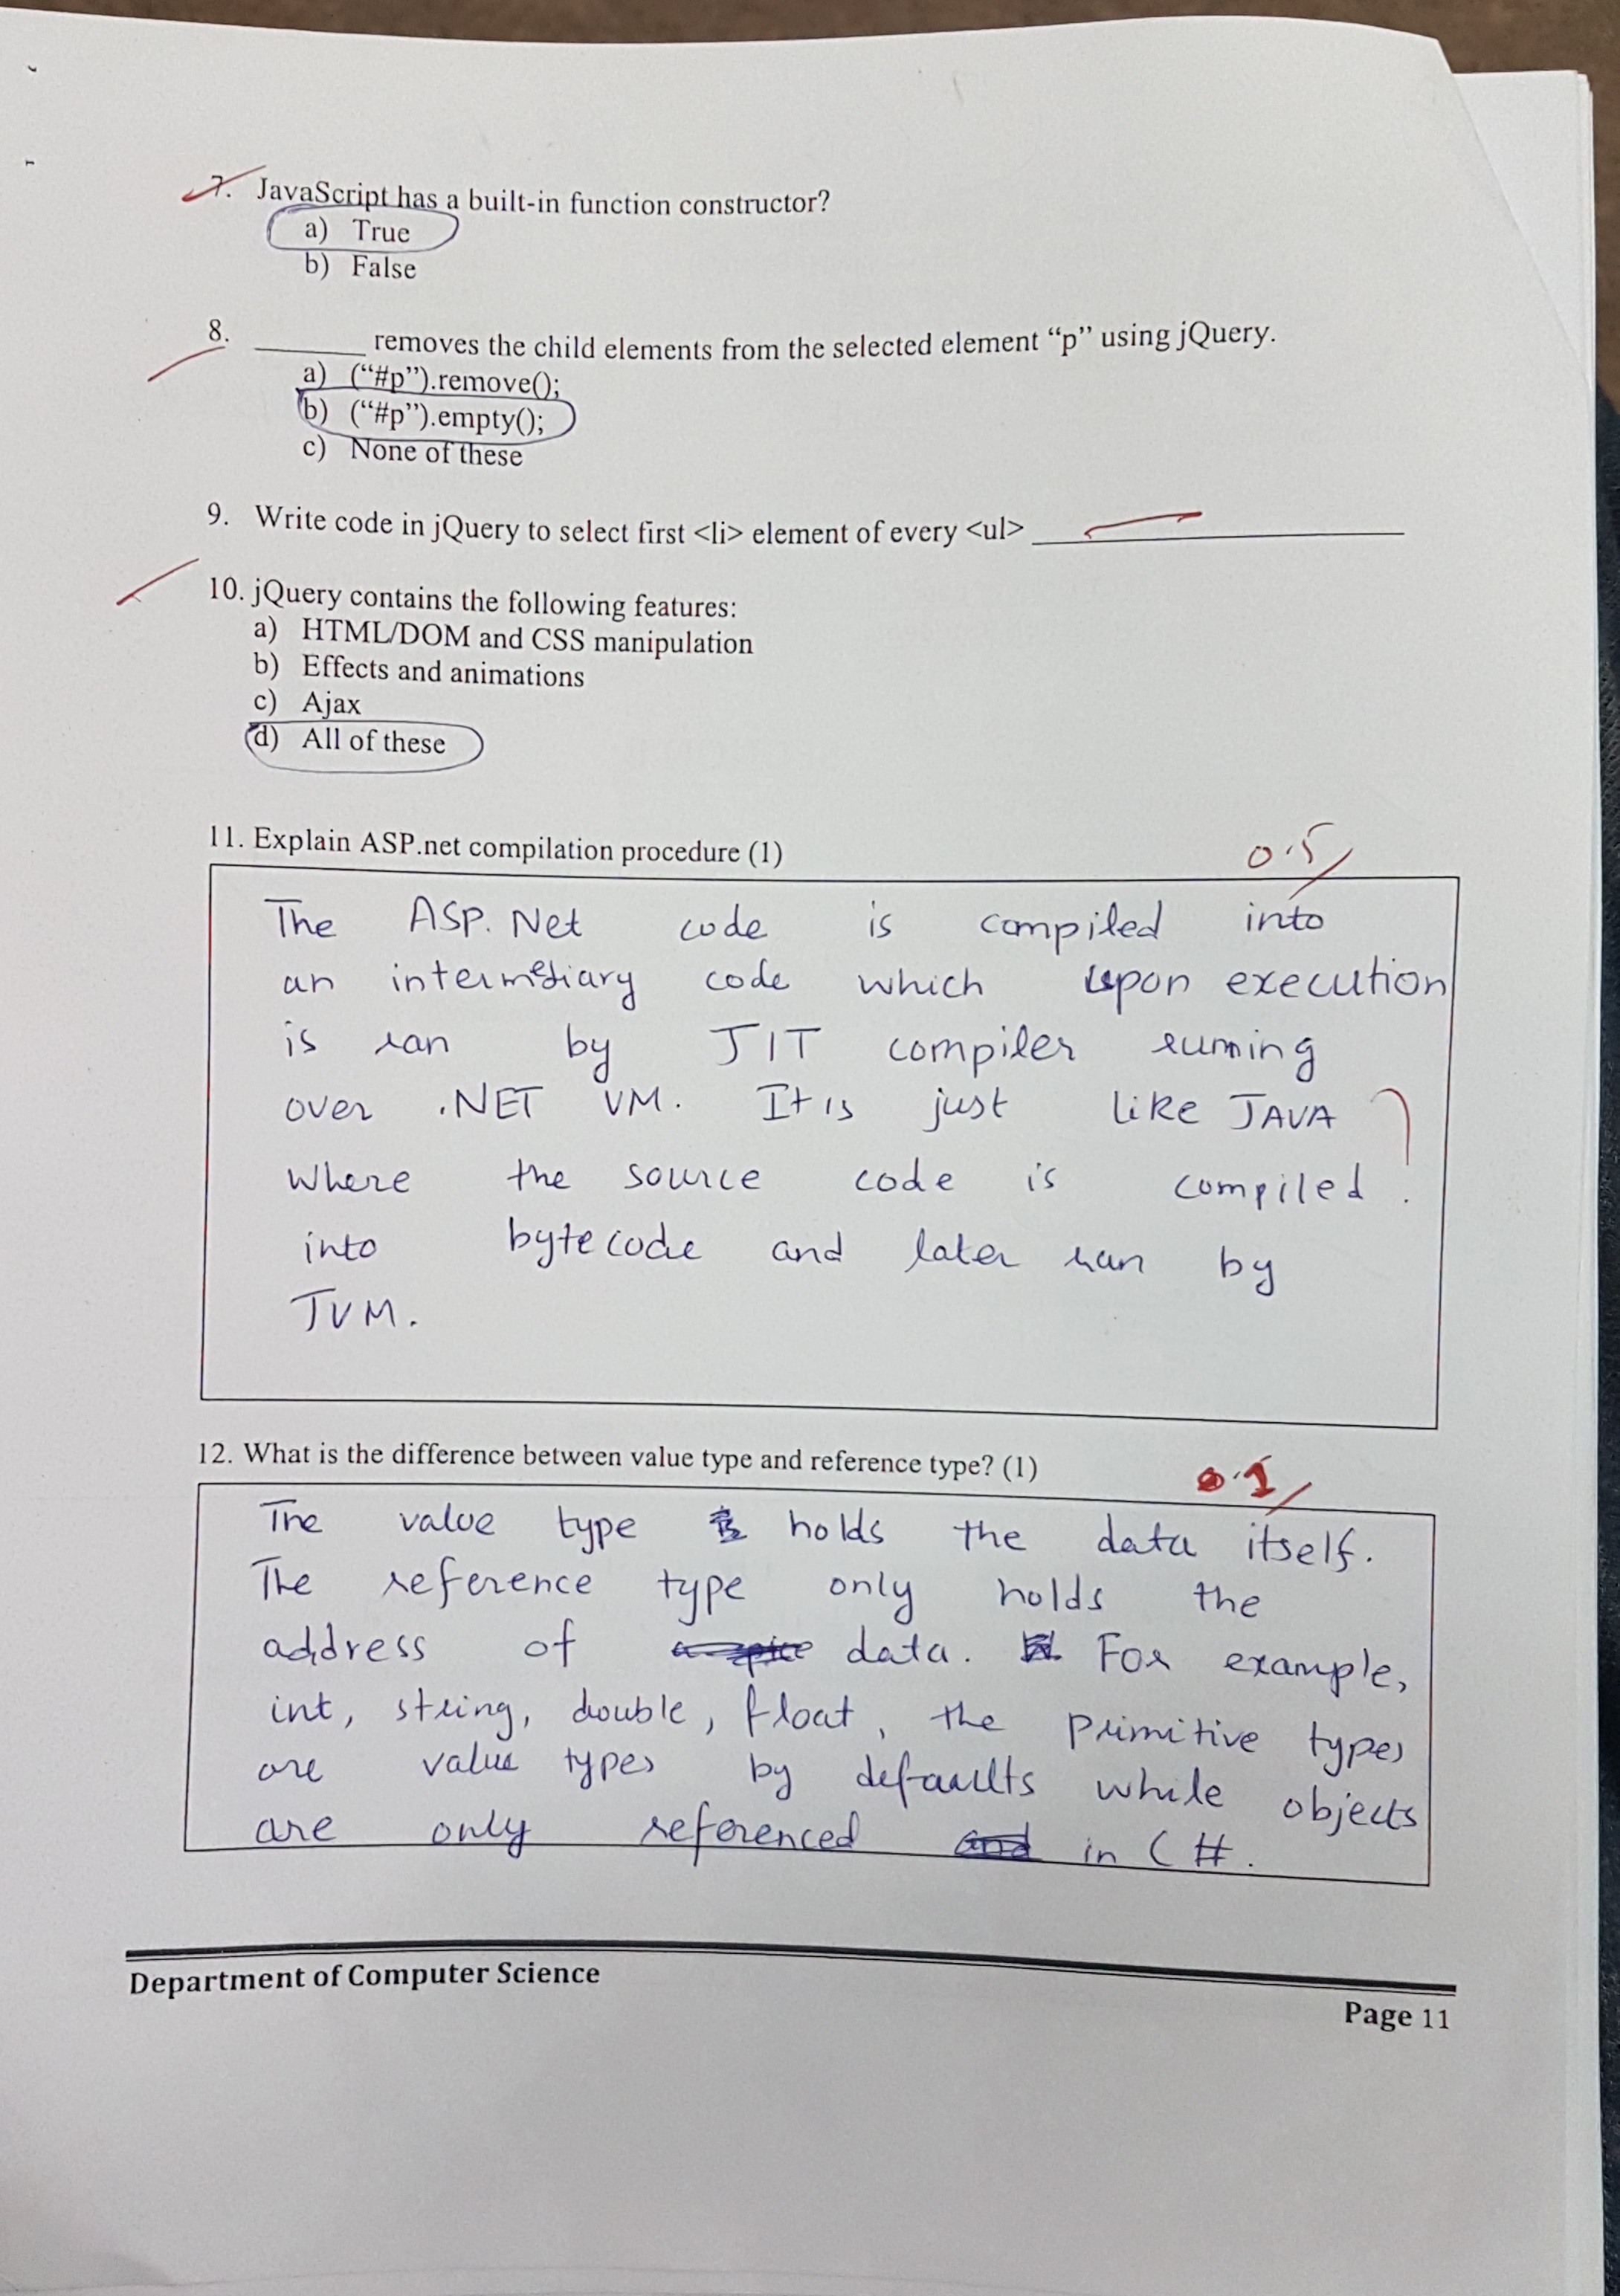 7. JavaScript has a built-in function constructor?
a) True
b) False
8. ______ removes the child elements from the selected element “p” using jQuery.
a) (“#p”).remove();
b) (“#p”).empty();
c) None of these
9. Write code in jQuery to select first <li> element of every <ul> ______
10. jQuery contains the following features:
a) HTML/DOM and CSS manipulation
b) Effects and animations
c) Ajax
d) All of these
11. Explain ASP.net compilation procedure (1)
0.5
The ASP. Net code is compiled into
an intermediary code which upon execution
is ran by JIT compiler running
over .NET VM. It is just like JAVA
where the source code is compiled
into bytecode and later ran by
JVM.
12. What is the difference between value type and reference type? (1)
The value type holds the data itself.
The reference type only holds the
address of data. For example,
int, string, double, float, the primitive types
are value types by defaults while objects
are only referenced in C#.
Department of Computer Science
Page 11